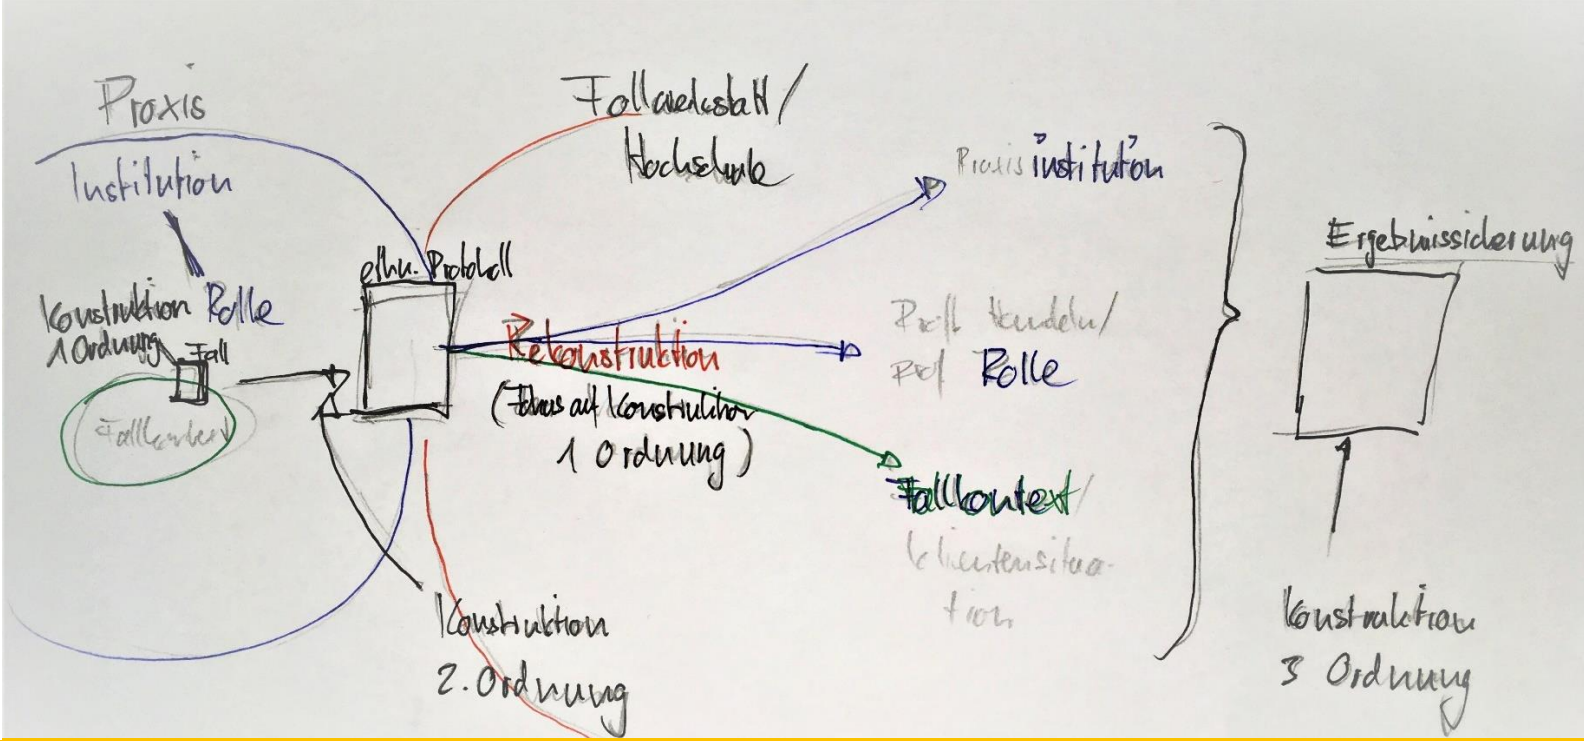 Praxis
Institution
Konstruktion
1 Ordnung
Rolle
Fall
Fallkontext
ethn. Protokoll
Fallwerkstatt/
Hochschule
Rekonstruktion
(Fokus auf Konstruktion
1 Ordnung)
Konstruktion
2. Ordnung
Praxisinstitution
Prof. Handeln/
Prof Rolle
Fallkontext/
klientensitua-
tion
Ergebnissicherung
Konstruktion
3 Ordnung